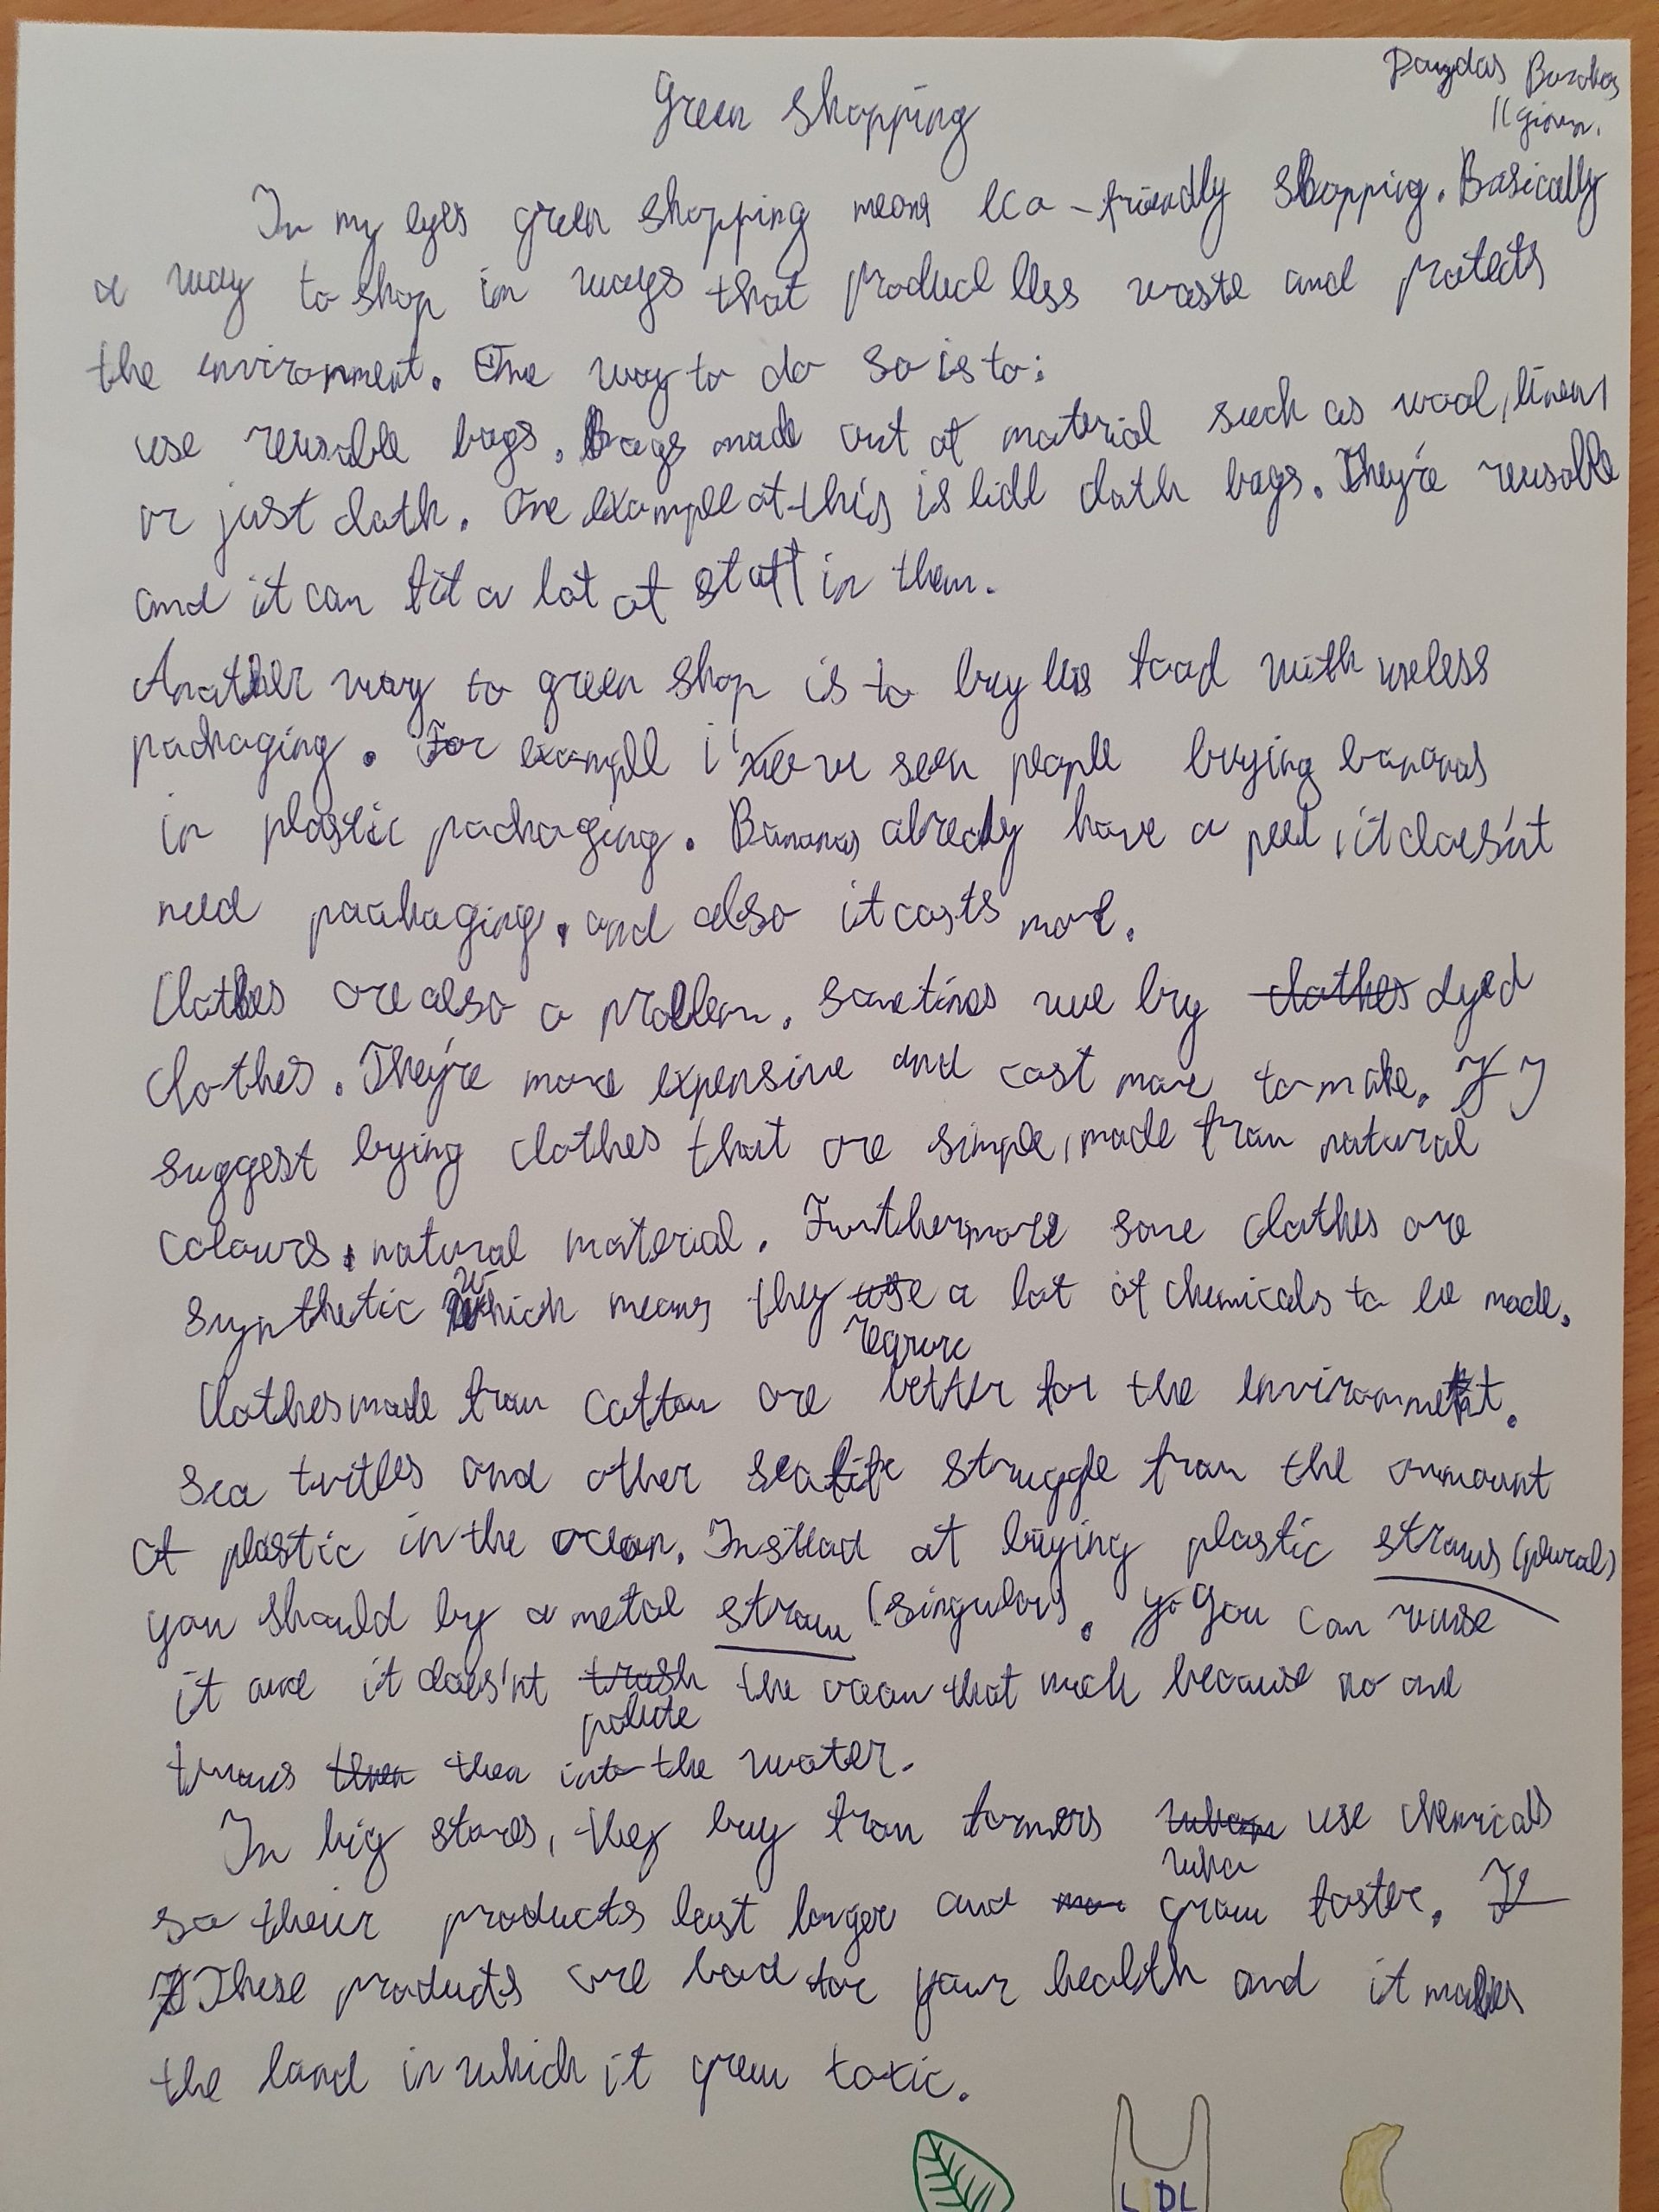 Green shopping
In my eyes green shopping means eco-friendly shopping. Basically
a way to shop in ways that produce less waste and protects
the environment. One way to do so is to:
use reusable bags. Bags made out of material such as wool, linen,
or just cloth. One example of this is lidl cloth bags. They're reusable
and it can fit a lot of stuff in them.
Another way to green shop is to buy less food with useless
packaging. For example i've seen people buying bananas
in plastic packaging. Bananas already have a peel, it does'nt
need packaging, and also it costs more.
Clothes are also a problem. Sometimes we buy clothes dyed
clothes. They're more expensive and cost more to make. I
suggest bying clothes that are simple, made from natural
colours, natural material. Furthermore some clothes are
synthetic which means they use a lot of chemicals to be made.
require
Clothes made from cotton are better for the environment.
Sea turtles and other sealife struggle from the ammount
of plastic in the ocean. Instead of buying plastic straws (plural)
you should by a metal straw (singular). You can reuse
it and it does'nt trash the ocean that much because no one
polute
trows them into the water.
In big stores, they buy from farmers use chemicals
who
so their products last longer and grow faster.
These products are bad for your health and it makes
the land in which it grew toxic.
L DL